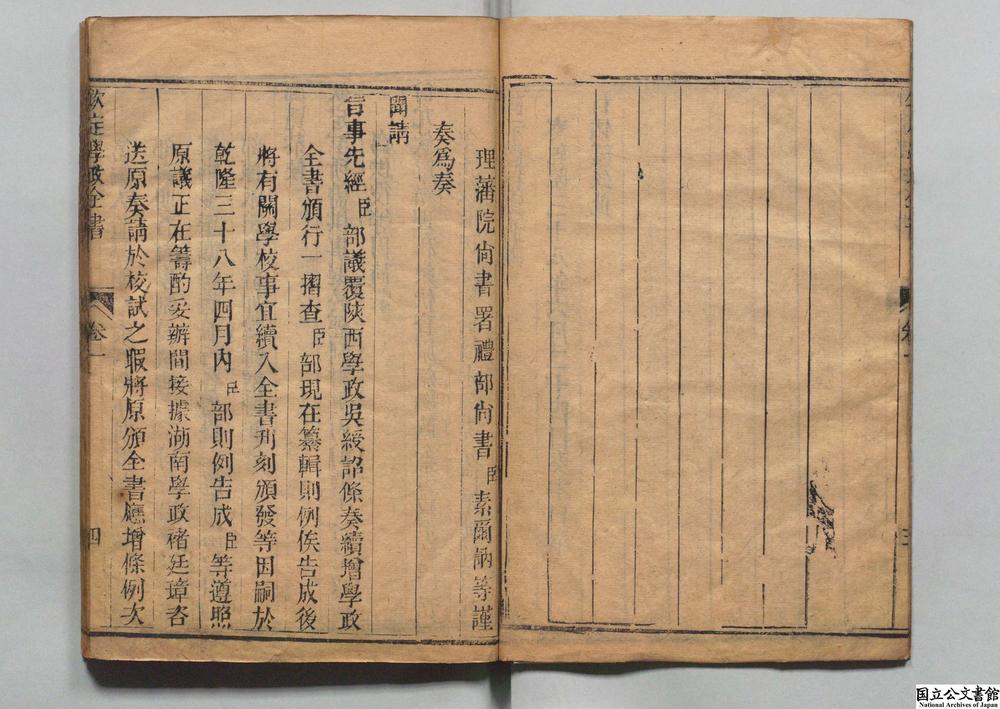 理藩院尚書署禮部尚書臣素爾訥等謹
奏爲奏
聞請
旨事先經臣部議覆陝西學政吳綬詔條奏續增學政
全書頒行一摺查臣部現在纂輯則例俟告成後
將有關學校事宜續入全書刋刻頒發等因嗣於
乾隆三十八年四月內臣部則例告成臣等遵照
原議正在籌酌妥辦間接據湖南學政褚廷璋咨
送原奏請於校試之暇將原頒全書應增條例次
欽定學政全書
卷一
四
国立公文書館
National Archives of Japan